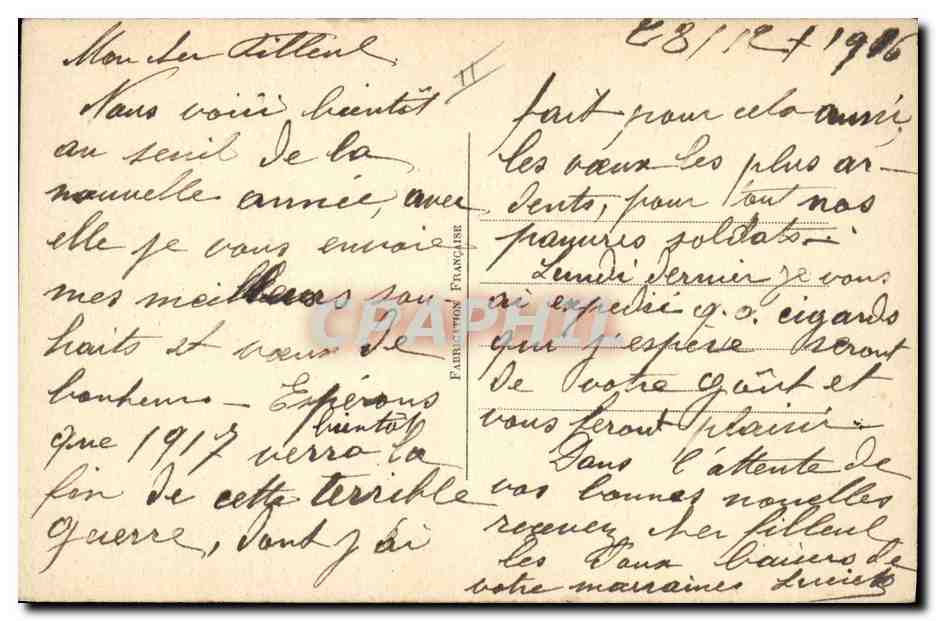 28/12/1916
Mon cher Filleul
II
Nous voici bientôt
au seuil de la
nouvelle année, avec
elle je vous envoie
mes meilleurs sou-
haits et vœux de
bonheurs – Espérons
que 1917 verra bientôt la
fin de cette terrible
guerre, dont j'ai
FABRICATION FRANÇAISE
fait pour cela aussi,
les vœux les plus ar-
dents, pour tout nos
pauvres soldats –
Lundi dernier je vous
ai expedié q.q. cigares
qui j'espère seront
de votre goût et
vous feront plaisir –
Dans l'attente de
vos bonnes nouvelles
recevez cher filleul
les doux baisers de
votre marraines Lucie
CPAPHIL